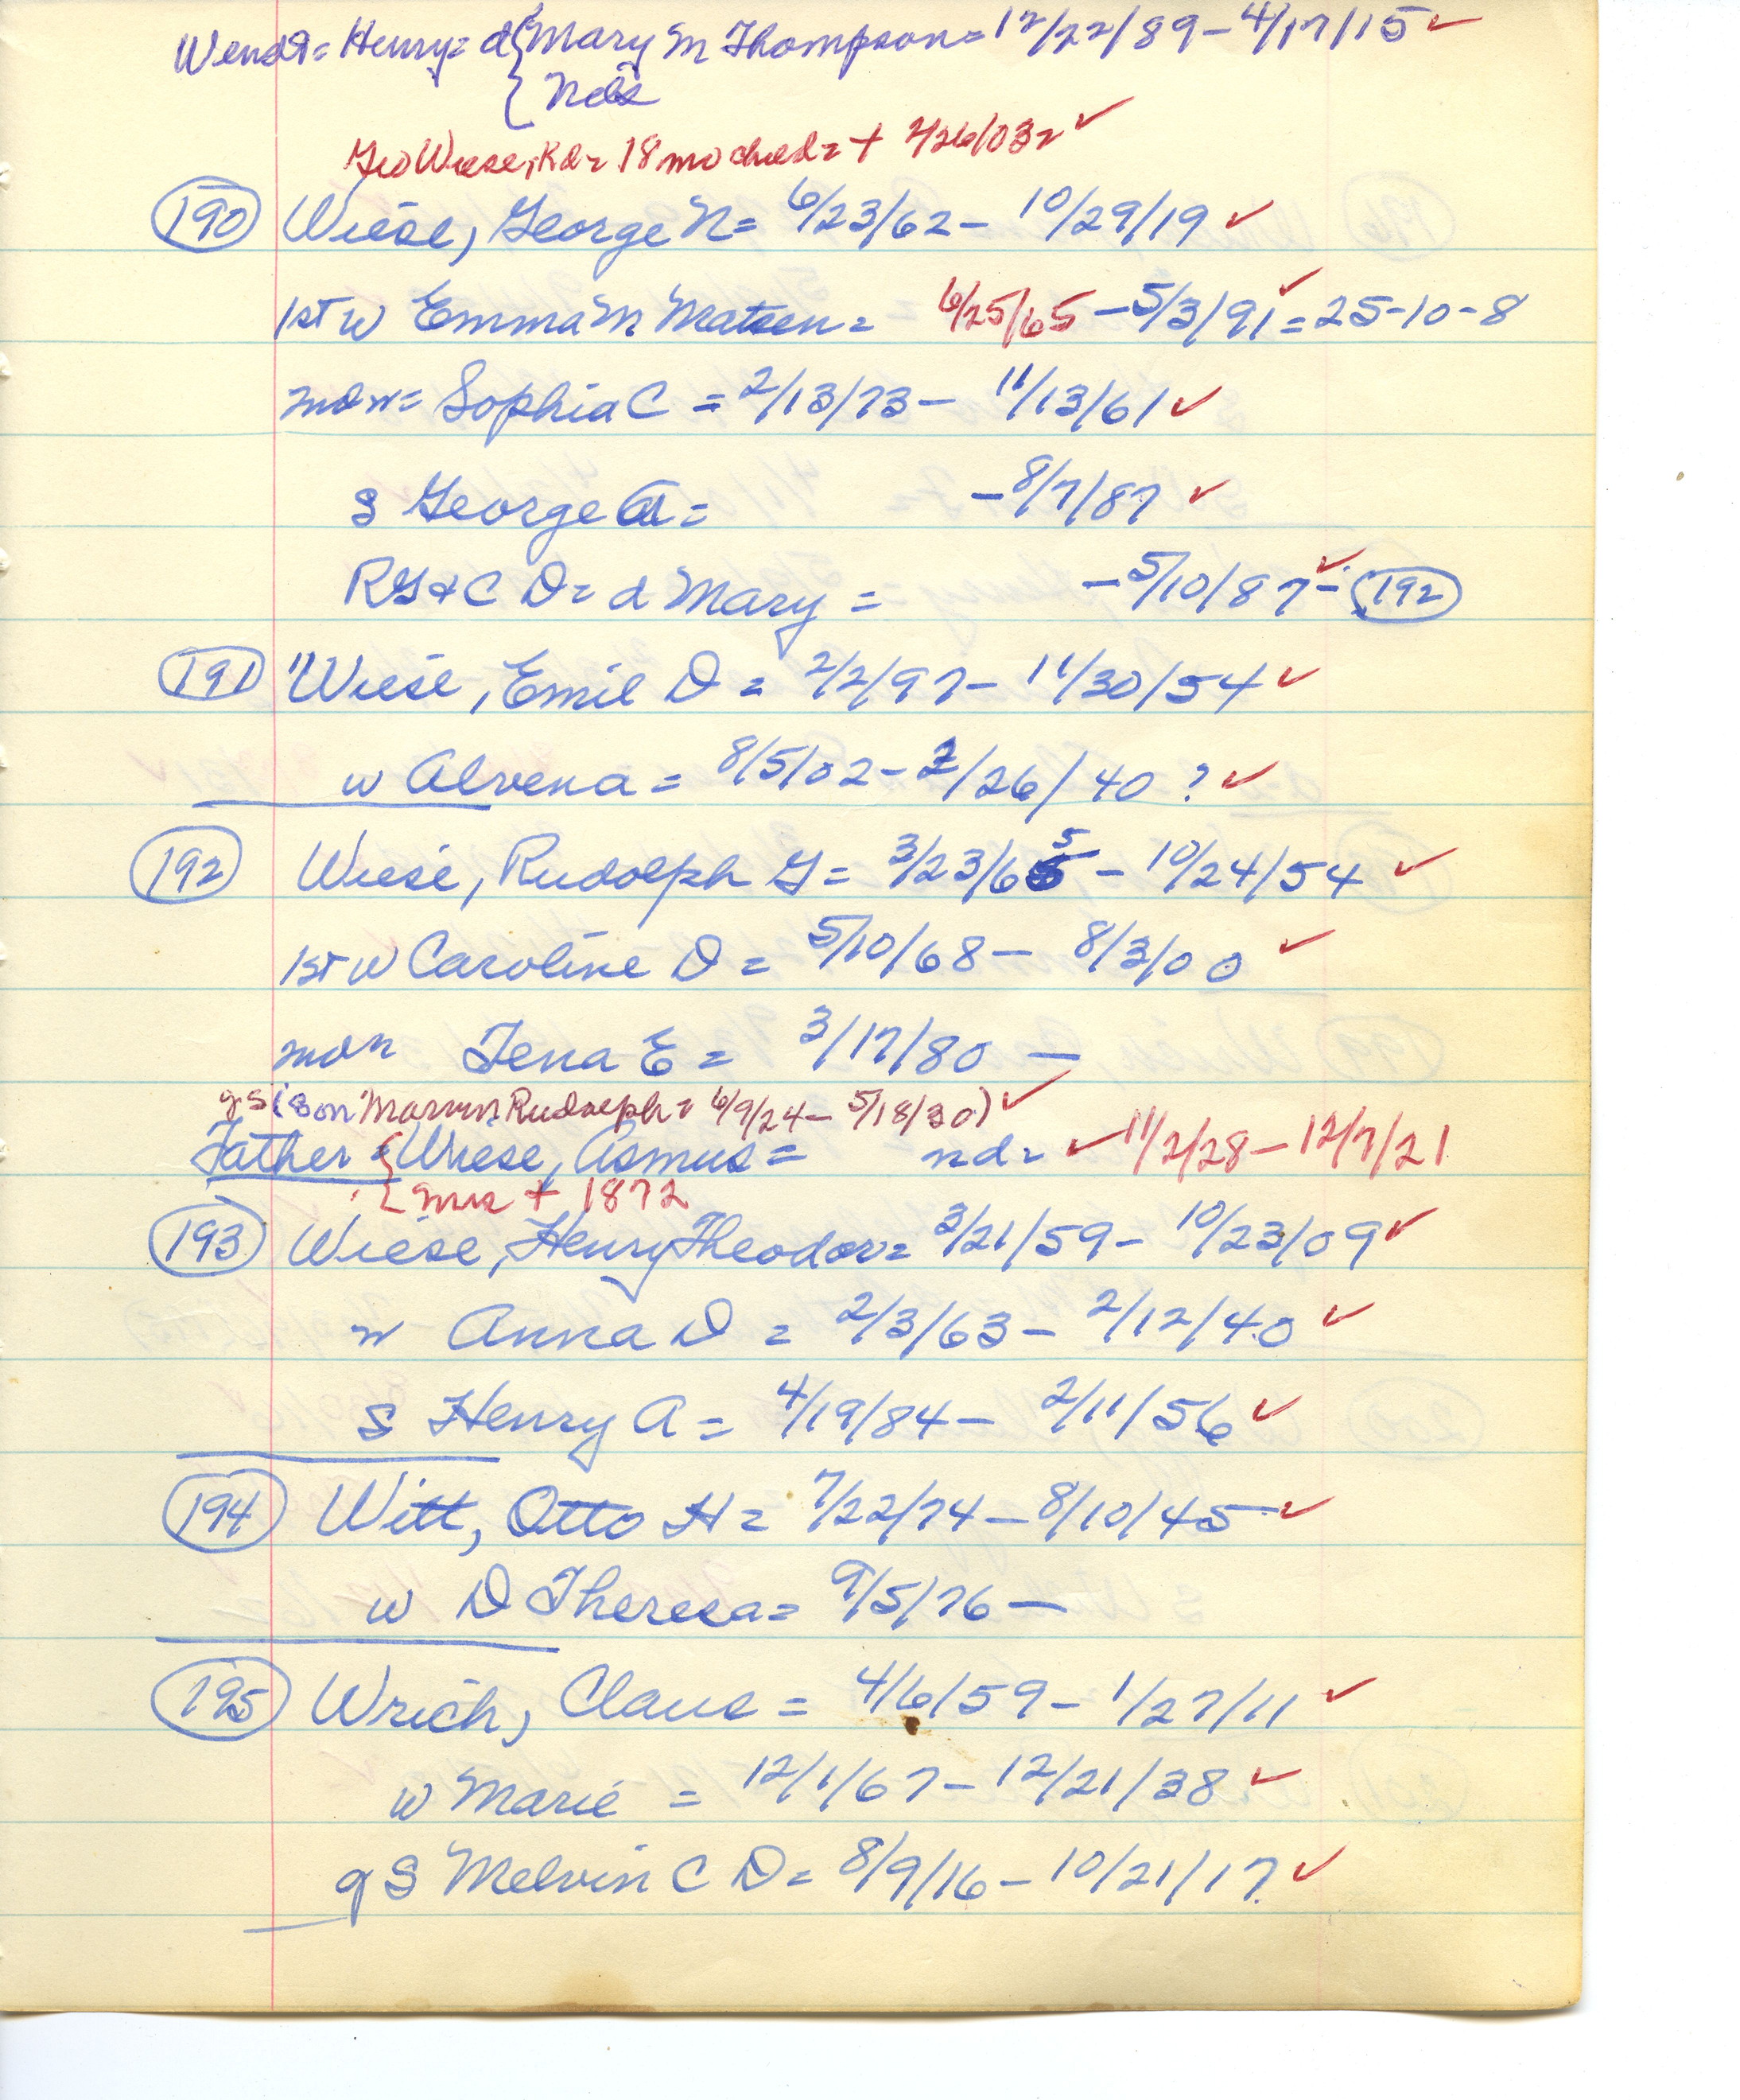 Wendt = Henry = d { Mary M Thompson = 12/22/89 - 4/17/15 ✓
{ Nels
Geo Wiese, Rd = 18 mo child = + 2/26/03 = ✓
(190) Wiese, George N = 6/23/62 - 10/29/19 ✓
1st w Emma M Matsen = 6/25/65 - 5/3/91 ✓ = 25-10-8
mdn = Sophia C = 2/13/73 - 11/13/61 ✓
s George A = - 8/7/87 ✓
RG & C D = d Mary = - 5/10/87 ✓ - (192)
(191) Wiese, Emil D = 2/2/97 - 11/30/54 ✓
w Alvena = 8/5/02 - 2/26/40 ? ✓
(192) Wiese, Rudolph G = 3/23/65 - 10/24/54 ✓
1st w Caroline D = 5/10/68 - 8/3/00 ✓
mdn Tena E = 3/17/80 -
gs (son Marvin Rudolph = 6/9/24 - 5/18/30) ✓
Father = { Wiese, Asmus = nd = ✓ 11/2/28 - 12/7/21
{ mrs + 1872
(193) Wiese, Henry Theodor = 3/21/59 - 10/23/09 ✓
w Anna D = 2/3/63 - 2/12/40 ✓
s Henry A = 4/19/84 - 2/11/56 ✓
(194) Witt, Otto H = 7/22/74 - 8/10/45 ✓
w D Theresa = 9/5/76 -
(195) Wrich, Claus = 4/6/59 - 1/27/11 ✓
w Marie = 12/1/67 - 12/21/38 ✓
g S Melvin C D = 8/9/16 - 10/21/17 ✓